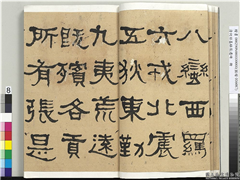 八蠻西羈
六戎北震
五狄東勤
九夷荒遠
既殯各貢
所有張是
8